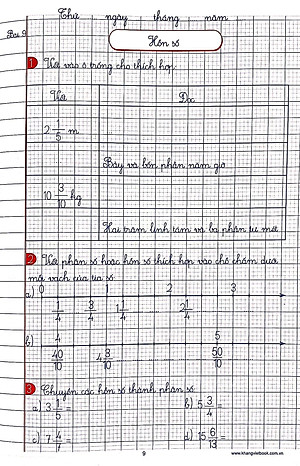 Thứ ngày tháng năm
Bài 9
Hỗn số
1 Viết vào ô trống cho thích hợp:
Viết Đọc
2 1/5 m
Bảy và bốn phần năm giờ
10 3/10 kg
Hai trăm linh tám và ba phần tư mét
2 Viết phân số hoặc hỗn số thích hợp vào chỗ chấm dưới
mỗi vạch của tia số:
a) 0 1 2 3
1/4 3/4 1 1/4 ...... 2 1/4
b) 4 5
40/10 4 3/10 ...... 50/10
3 Chuyển các hỗn số thành phân số:
a) 3 1/5 = b) 5 3/4 =
c) 7 4/7 = d) 15 6/13 =
9 www.khangvietbook.com.vn